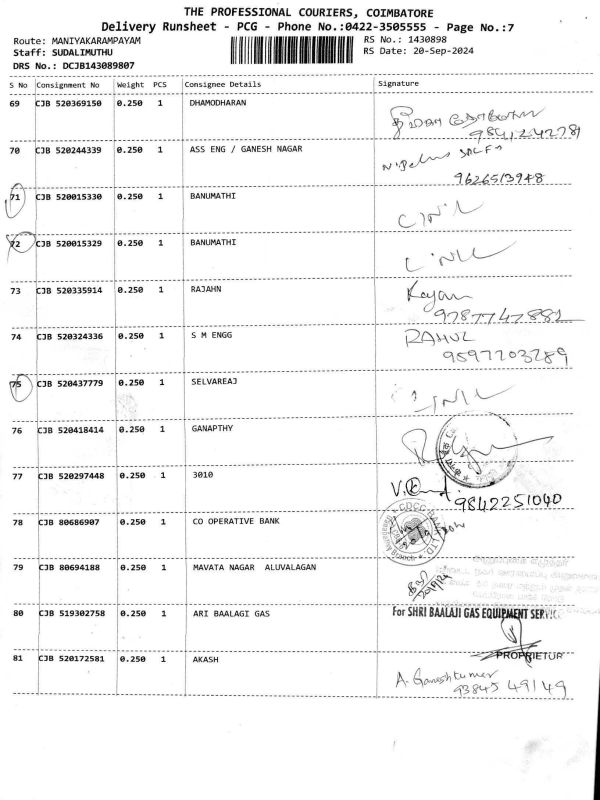 THE PROFESSIONAL COURIERS, COIMBATORE
Delivery Runsheet - PCG - Phone No.:0422-3505555 - Page No.:7
Route: MANIYAKARAMPAYAM RS No.: 1430898
Staff: SUDALIMUTHU RS Date: 20-Sep-2024
DRS No.: DCJB143089807
S No Consignment No Weight PCS Consignee Details Signature
69 CJB 520369150 0.250 1 DHAMODHARAN
9841242781
70 CJB 520244339 0.250 1 ASS ENG / GANESH NAGAR
9626513948
71 CJB 520015330 0.250 1 BANUMATHI
72 CJB 520015329 0.250 1 BANUMATHI
73 CJB 520335914 0.250 1 RAJAHN
9787747882
74 CJB 520324336 0.250 1 S M ENGG RAHUL
9597203289
75 CJB 520437779 0.250 1 SELVAREAJ
76 CJB 520418414 0.250 1 GANAPTHY
77 CJB 520297448 0.250 1 3010
9842251040
78 CJB 80686907 0.250 1 CO OPERATIVE BANK
79 CJB 80694188 0.250 1 MAVATA NAGAR ALUVALAGAN
80 CJB 519302758 0.250 1 ARI BAALAGI GAS For SHRI BAALAJI GAS EQUIPMENT SERVICE
PROPRIETOR
81 CJB 520172581 0.250 1 AKASH A. Ganeshkumar
93845 49149